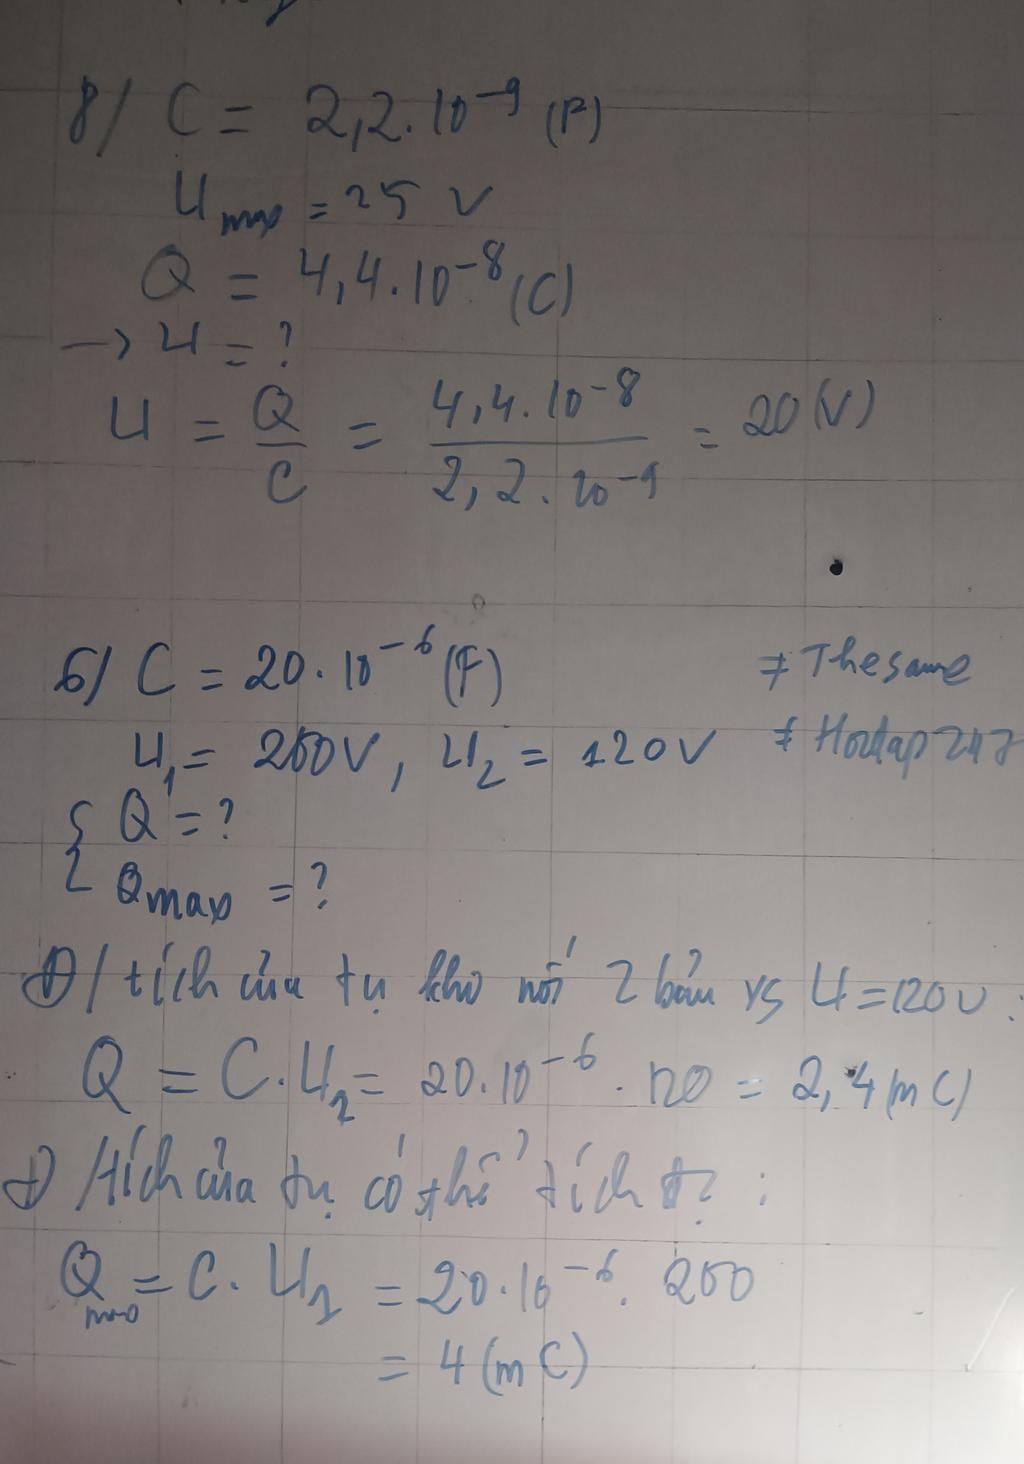 8/ C = 2,2.10⁻⁹ (F)
U max = 25 V
Q = 4,4.10⁻⁸ (C)
→ U = ?
U = Q/C = 4,4.10⁻⁸ / 2,2.10⁻⁹ = 20 (V)
6/ C = 20.10⁻⁶ (F) ≠ Thesame
U₁ = 200V, U₂ = 120V ≠ Hoctap247
{ Q = ?
Qmax = ?
+) /tích của tụ khi nối 2 bản vs U = 120V :
Q = C.U₂ = 20.10⁻⁶ . 120 = 2,4 (mC)
+) /tích của tụ có thể tích :
Qmax = C. U₁ = 20.10⁻⁶. 200
= 4 (mC)